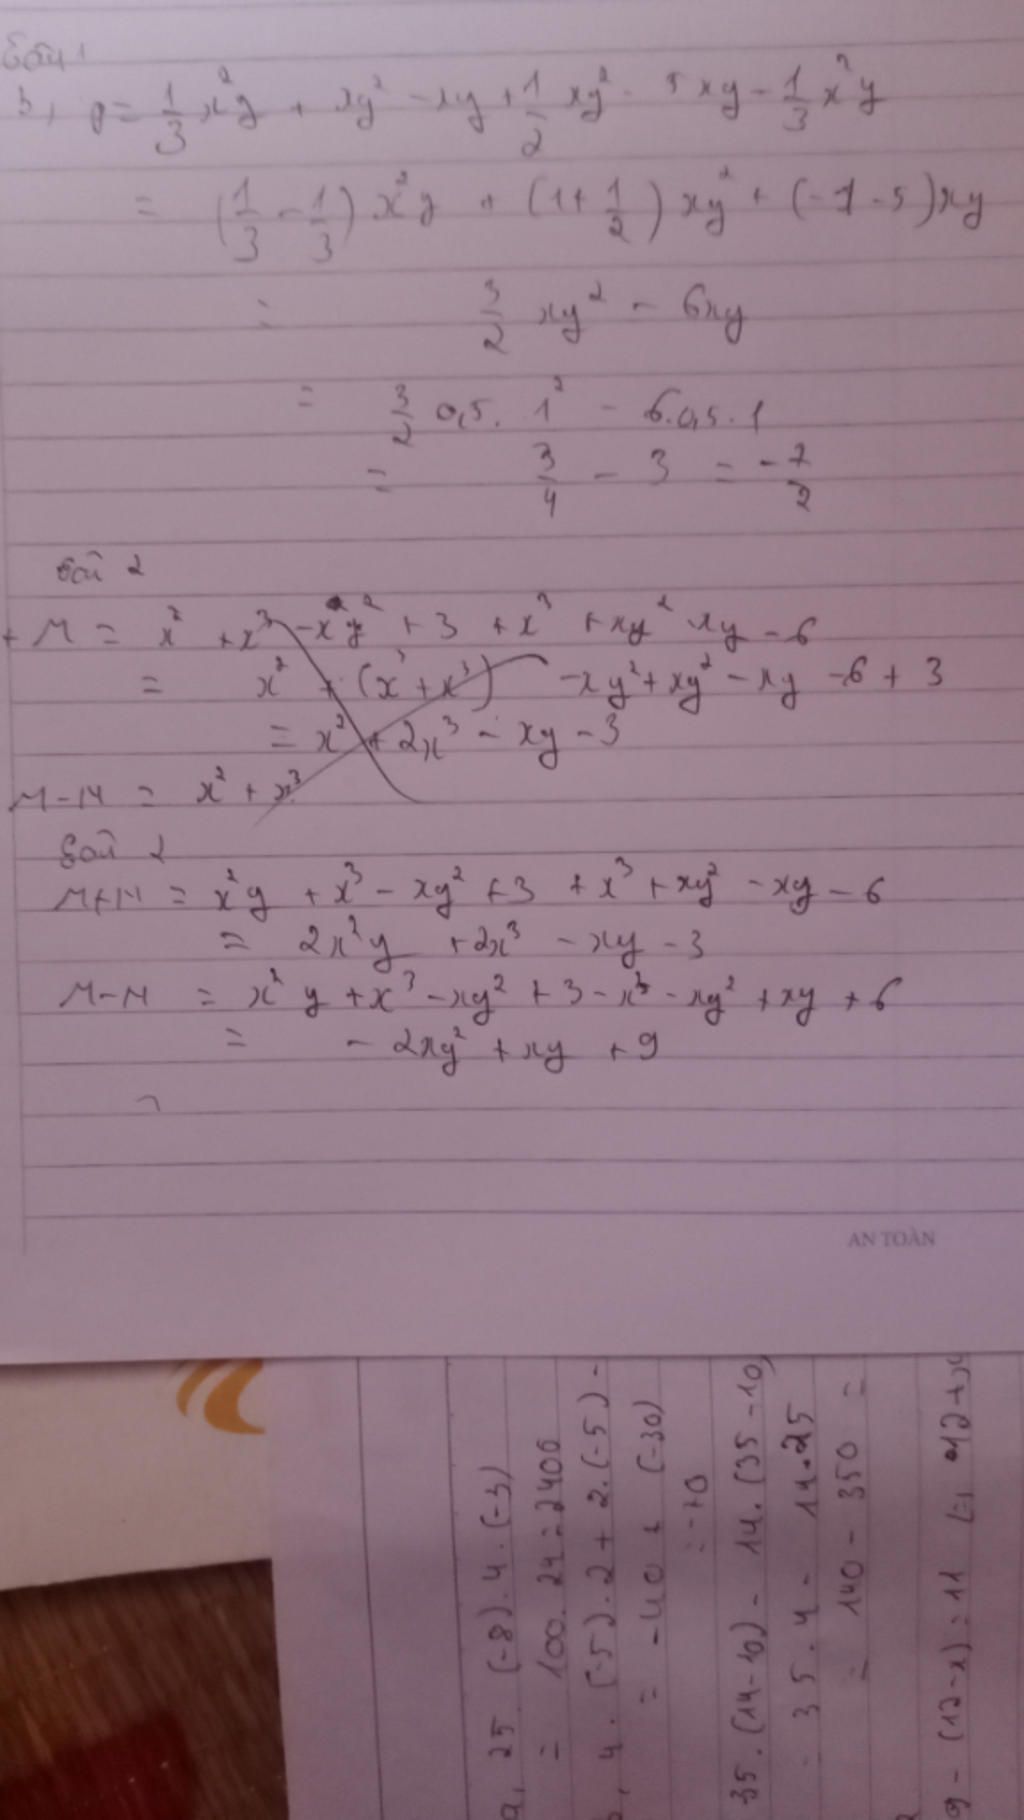 Bài 1
b, P = 1/3 x²y + xy² - xy + 1/2 xy² - 5xy - 1/3 x²y
= (1/3 - 1/3) x²y + (1 + 1/2) xy² + (-1 - 5)xy
= 3/2 xy² - 6xy
= 3/2 0,5. 1² - 6.0,5.1
= 3/4 - 3 = -7/2
Bài 2
+ M = x² + x³ - xy² + 3 + x³ + xy² xy - 6
= x² + (x³ + x³) - xy² + xy² - xy - 6 + 3
= x² + 2x³ - xy - 3
M - M = x² + x³
Bài 2
M + M = x²y + x³ - xy² + 3 + x³ + xy² - xy - 6
= 2x²y + 2x³ - xy - 3
M - M = x²y + x³ - xy² + 3 - x³ - xy² + xy + 6
= - 2xy² + xy + 9
AN TOÀN
a, 25. (-8). 4. (-3)
= 100. 24 = 2400
4. (-5). 2 + 2. (-5) -
= -40 + (-30)
= -70
35. (14-10) - 14. (35-10)
35. 4 - 14.25
= 140 - 350 =
9 - (12-x) = 11